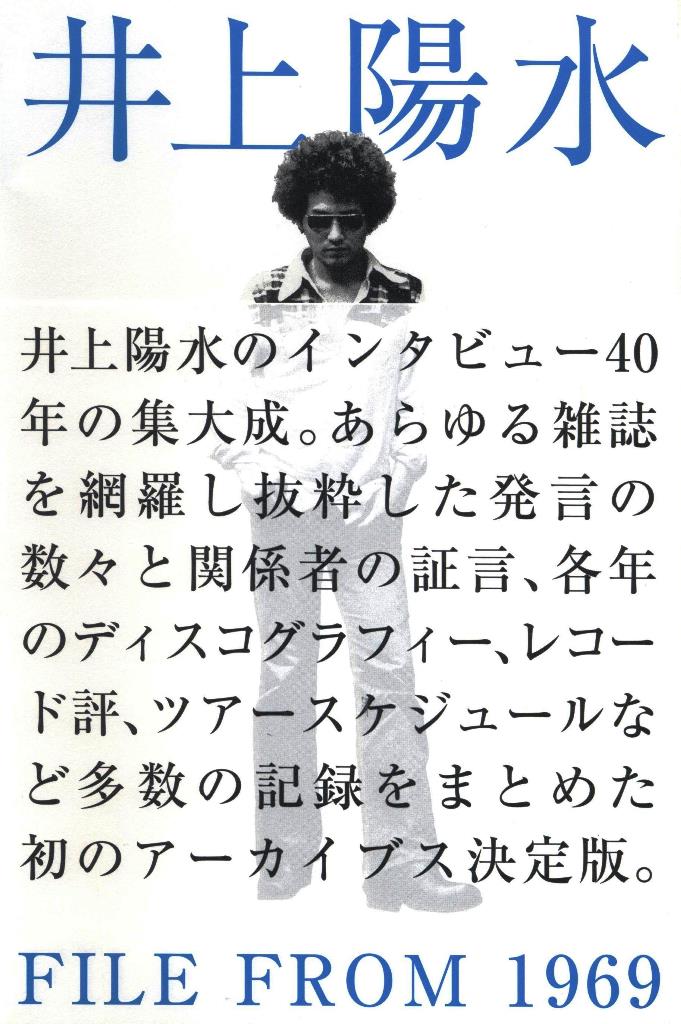 井上陽水
井上陽水のインタビュー40
年の集大成。あらゆる雑誌
を網羅し抜粋した発言の
数々と関係者の証言、各年
のディスコグラフィー、レコー
ド評、ツアースケジュールな
ど多数の記録をまとめた
初のアーカイブス決定版。
FILE FROM 1969